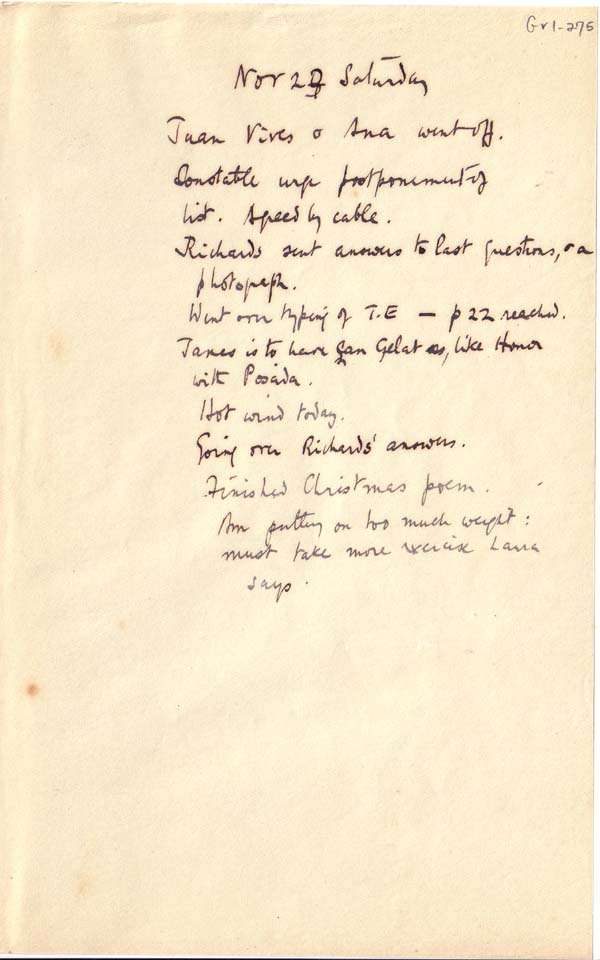 Gr1-275
Nov 27 Saturday
Juan Vives & Ana went off.
Constable urge postponement of
list. Agreed by cable.
Richards sent answers to last questions, & a
photograph.
Went over typing of T.E — p 22 reached.
James is to have San Gelat as, like Honor
with Posada.
Hot wind today.
Going over Richards' answers.
Finished Christmas poem.
Am putting on too much weight:
must take more exercise Laura
says.